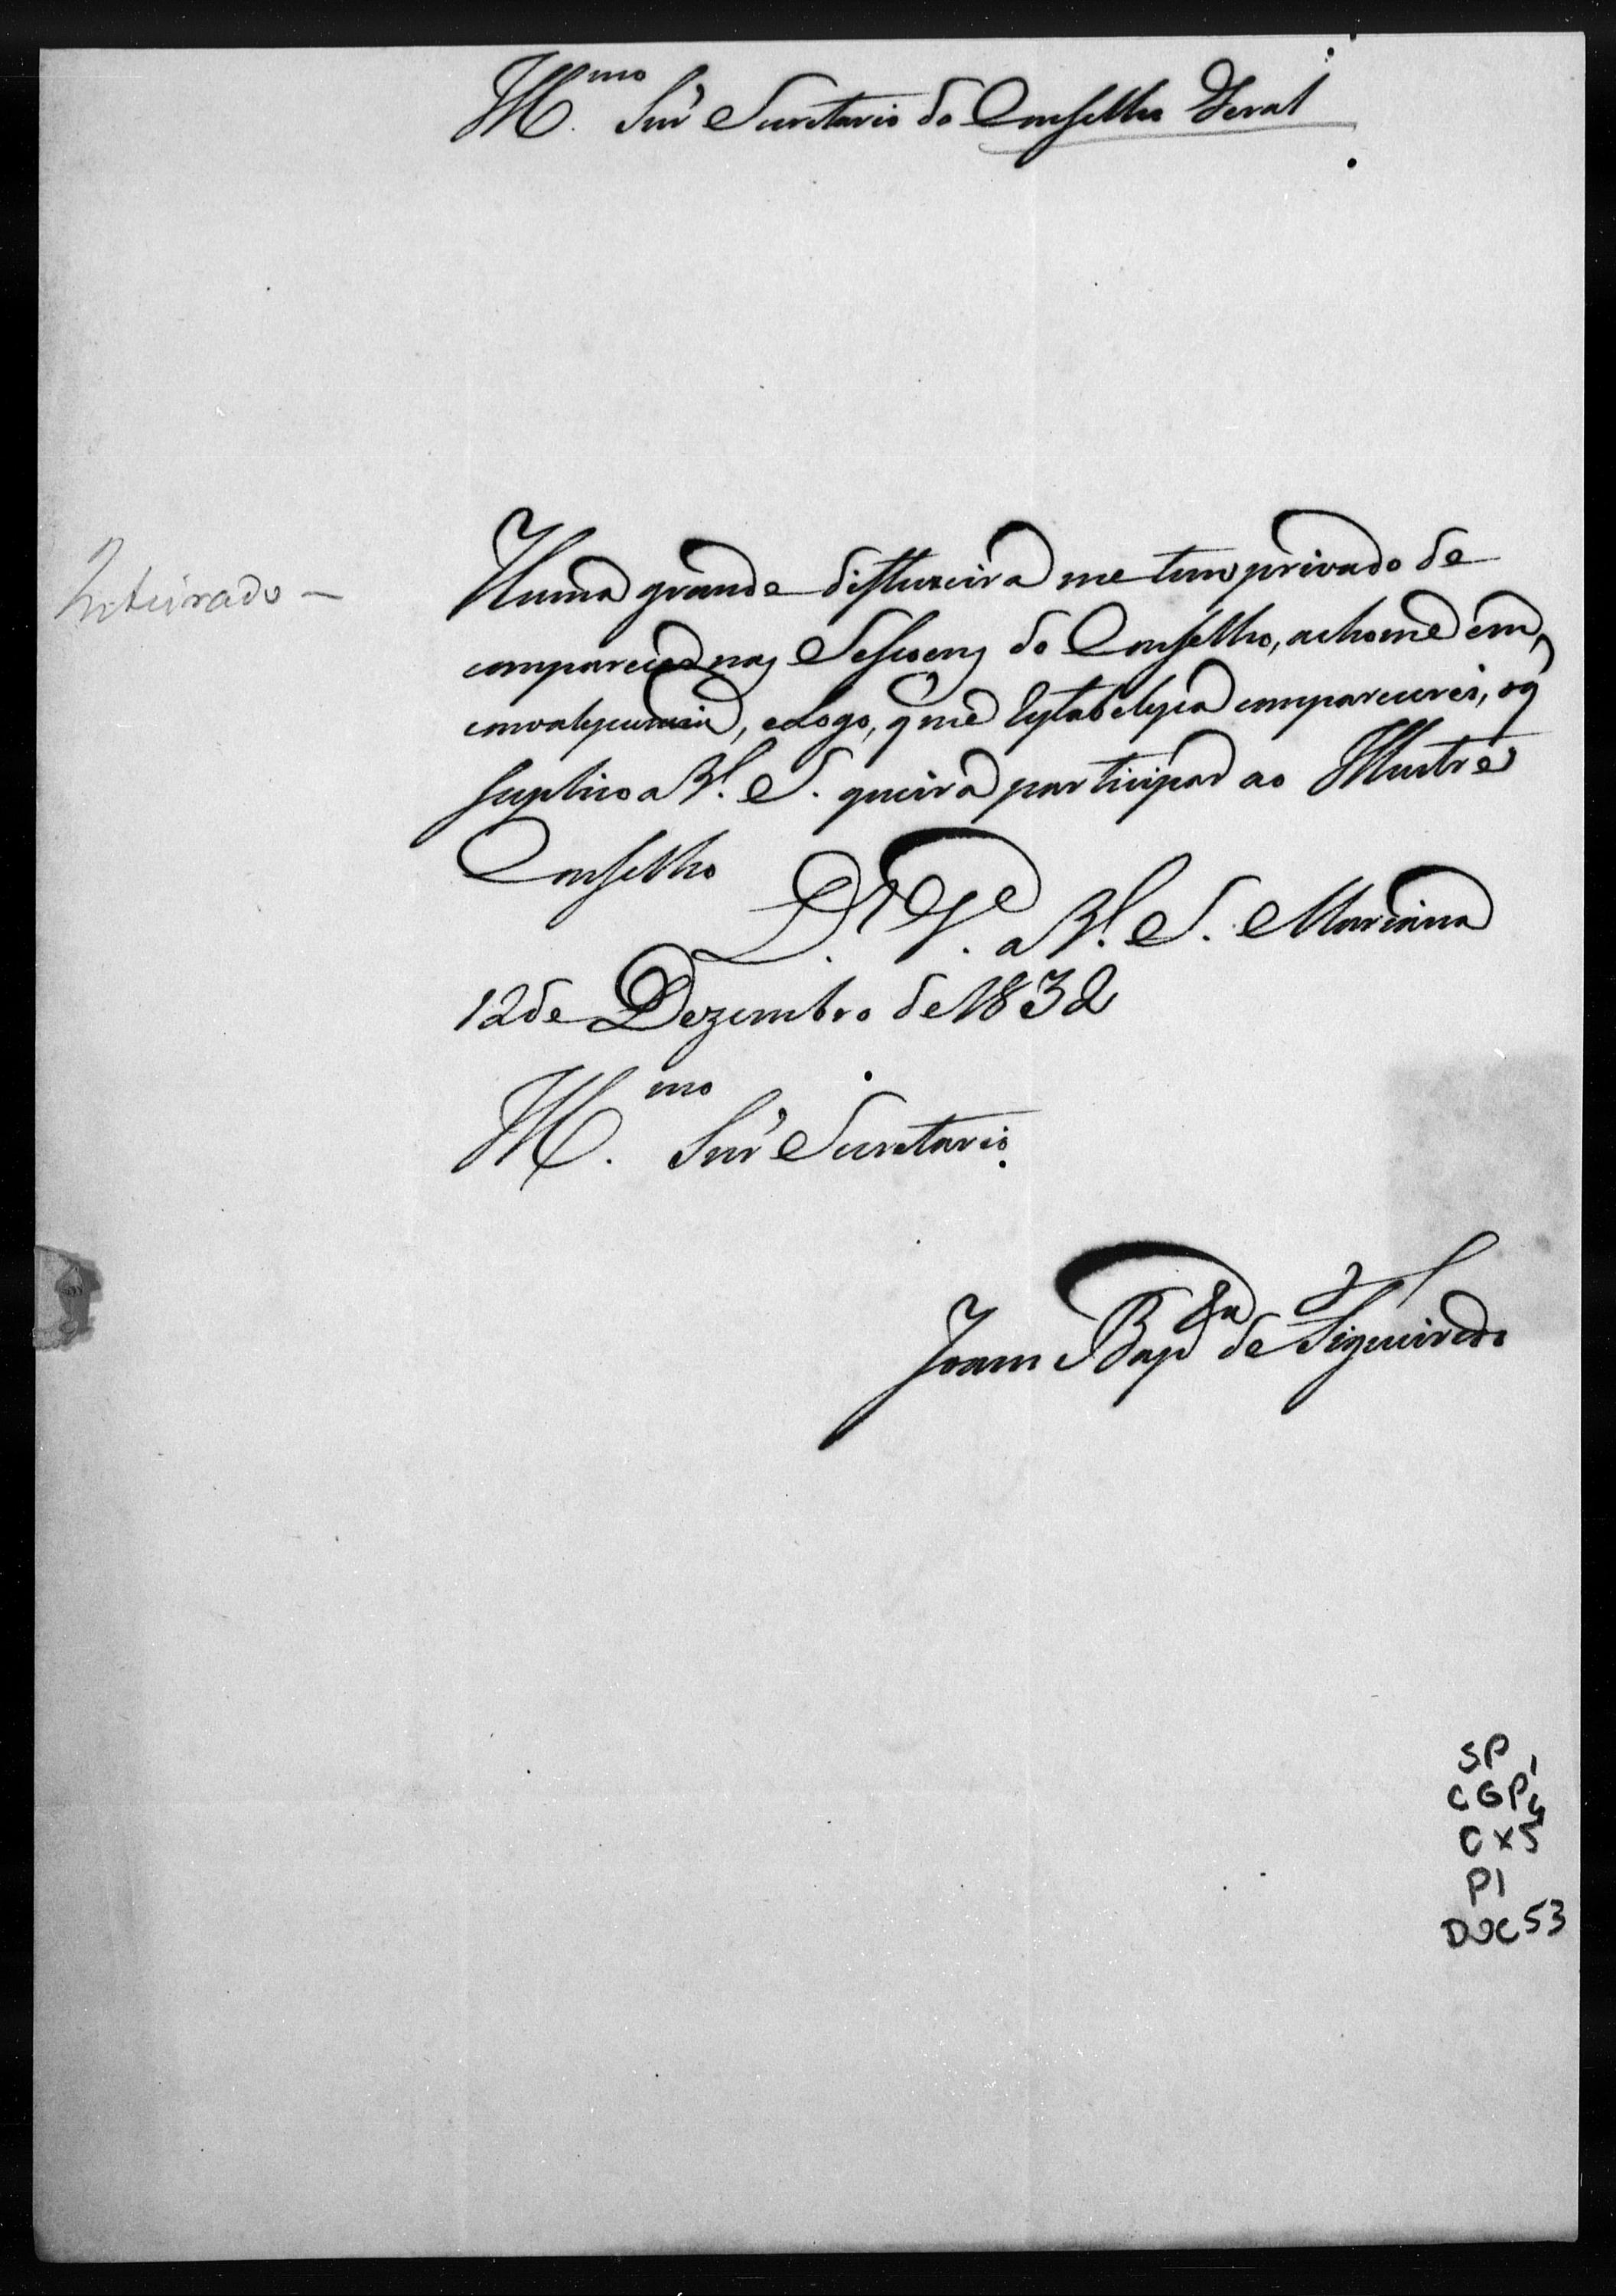 Illmo Snr Secretario do Conselho Geral
Inteirado —
Huma grande disfluxeira me tem privado de
comparecer nas Sessoens do Conselho, achome em
convalescencia, e logo, q me Estabeleça comparecerei, o q
suplico a V. S. queira participar ao Illustre
Conselho
Ds Ge a V. S. Marianna
12 de Dezembro de 1832
Illmo Snr Secretario
Joam Bapta de Figueiredo
SP
CGP1
CX5
P1
DOC 53